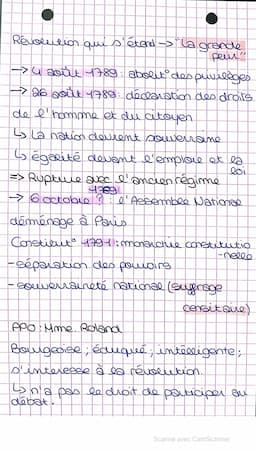 Révolution qui s'étend → "La grande
peur"
→ 4 août 1789 : abolit° des privilèges
→ 26 août 1789 : déclaration des droits
de l'homme et du citoyen
↳ La nation devient souveraine
↳ égalité devant l'emploie et la
loi
=> Rupture avec l'ancien régime
1789
→ 6 octobre ? : l'Assemblée National
déménage à Paris
Constitut° 1791 : monarchie constitutio
-nelle
- séparation des pouvoirs
- souveraineté national (suffrage
censitaire)
PPO : Mme. Roland
Bourgeoise ; éduqué ; intelligente ;
s'interesse à la révolution.
↳ n'a pas le droit de participer au
débat.
Scanné avec CamScanner